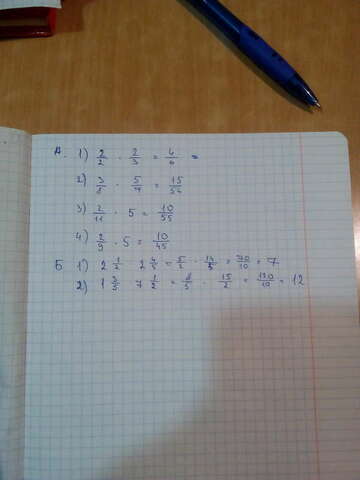 А. 1) 2/2 · 2/3 = 4/6 =
2) 3/8 · 5/7 = 15/56
3) 2/11 · 5 = 10/55
4) 2/9 · 5 = 10/45
Б 1) 2 1/2 2 4/5 = 5/2 · 14/5 = 70/10 = 7
2) 1 3/5 7 1/2 = 8/5 · 15/2 = 120/10 = 12